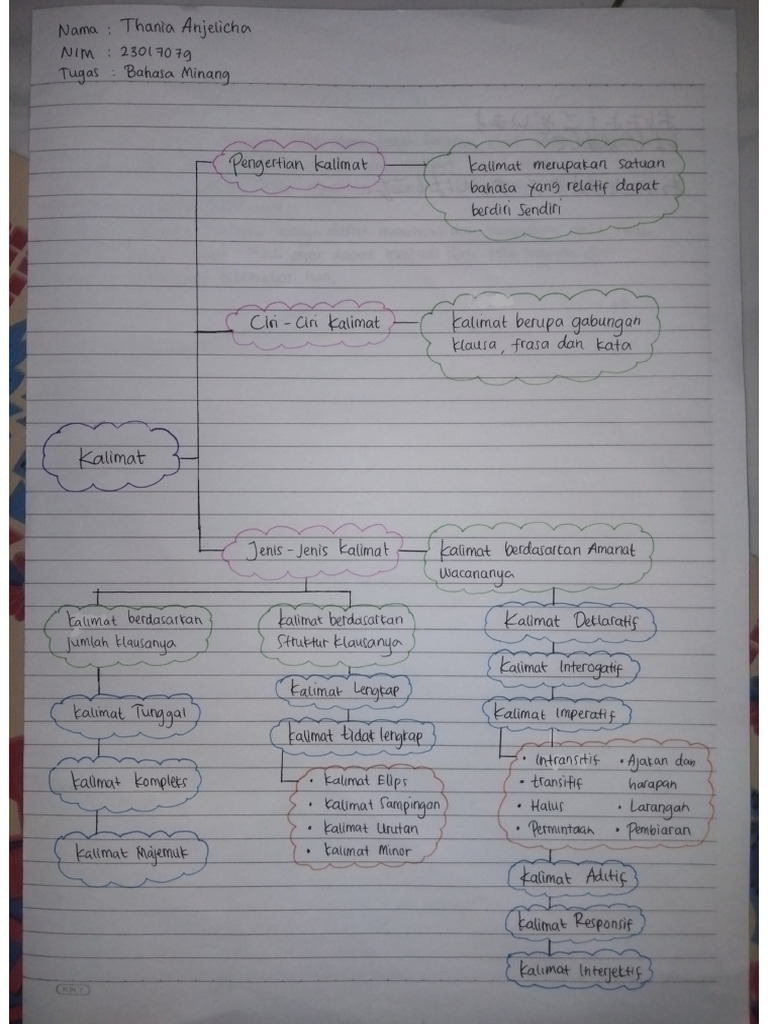 Nama : Thania Anjelicha
NIM : 23017079
Tugas : Bahasa Minang
Pengertian Kalimat
Kalimat merupakan satuan
bahasa yang relatif dapat
berdiri sendiri
Ciri - Ciri Kalimat
Kalimat berupa gabungan
klausa, frasa dan kata
Kalimat
Jenis - Jenis Kalimat
Kalimat berdasarkan Amanat
Wacananya
Kalimat berdasarkan
jumlah klausanya
Kalimat Tunggal
Kalimat Kompleks
Kalimat Majemuk
Kalimat berdasarkan
Struktur Klausanya
Kalimat Lengkap
Kalimat tidak lengkap
• Kalimat Elips
• Kalimat Sampingan
• Kalimat Urutan
• Kalimat Minor
Kalimat Deklaratif
Kalimat Interogatif
Kalimat Imperatif
• Intransitif
• transitif
• Halus
• Permintaan
• Ajakan dan
harapan
• Larangan
• Pembiaran
Kalimat Aditif
Kalimat Responsif
Kalimat Interjektif